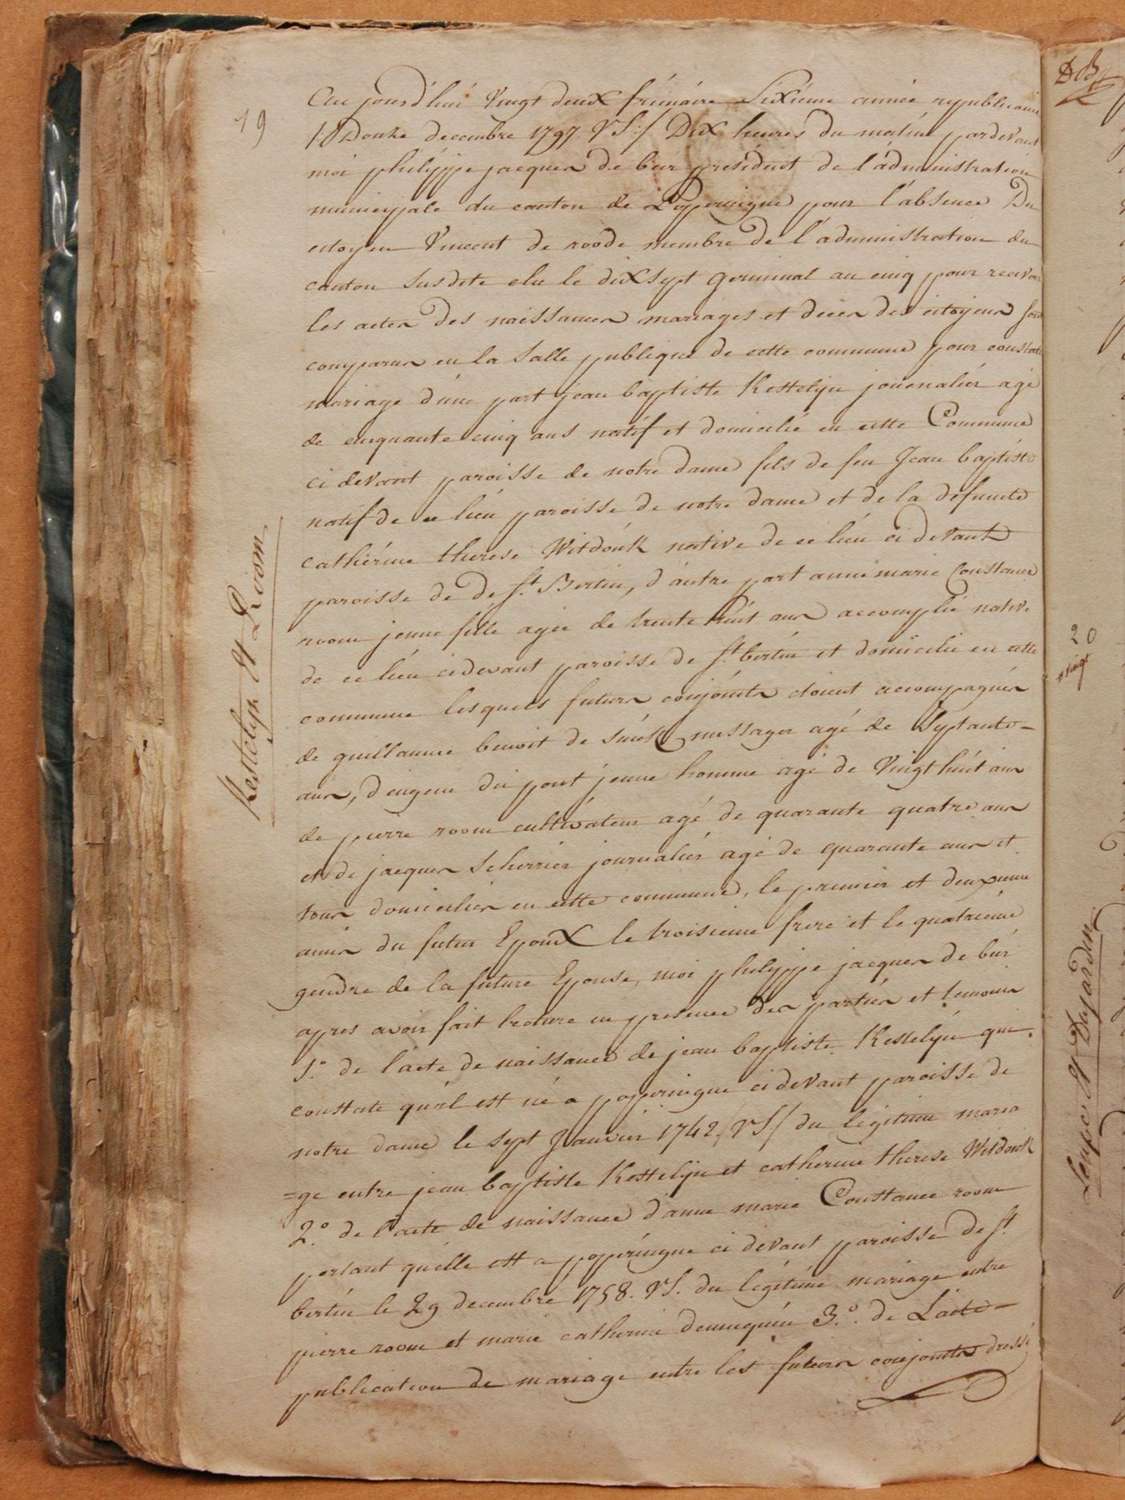 19
Kestelyn et Room
Cejourd'hui Vingt deux frimaire Sixieme année republicaine
/ 12 Douze decembre 1797 VS:/ Dix heures du matin pardevant
moi philippe jacques de bur président de l'administration
municipale du canton de Poperingue pour l'absence Du
citoyen Vincent de roode membre de l'administration du
canton susdite elu le dix sept germinal an cinq pour recevoir
les actes des naissances mariages et décès des citoyens sont
comparus en la Salle publique de cette commune pour constater
mariage d'une part jean baptiste Kestelijn journalier agé
de cinquante cinq ans natif et domicilié en cette Commune
ci devant paroisse de notre dame fils de feu Jean baptiste
natif de ce lieu paroisse de notre dame et de la defuncte
catherine therese Witdouk native de ce lieu ci devant
paroisse de de St. Bertin, d'autre part anne marie Constance
room jeune fille agée de trente huit ans accomplie native
de ce lieu ci devant paroisse de St bertin et domicilié en cette
commune lesquels futurs conjoints étoient accompagnés
de guillaume benoit de messager agé de Septante=
ans, d'eugene du pont jeune homme agé de Vingt huit ans
de pierre room cultivateur agé de quarante quatre ans
et de jacques Scherrier journalier agé de quarante ans et
tous domiciliés en cette commune, le premier et deuxieme
amis du futur Epoux le troisieme frere et le quatrieme
gendre de la future Epouse, moi philippe jacques de bur
apres avoir fait lecture en presence des partiés et temoins
1.° de l'acte de naissance de jean baptiste Kestelijn qui
constate qu'il est né a poperingue ci devant paroisse de
notre dame le sept Janvier 1742 / VS / du légitime maria
=ge entre jean baptiste Kestelijn et catherine therese Witdouk
2.° de l'acte de naissance d'anne marie Constance room
portant qu'elle est a poperingue ci devant paroisse de St
bertin le 29 decembre 1758. VS. du légitime mariage entre
pierre room et marie catherine 3.° de L'acte=
publication de mariage entre les futurs conjoints dressé
20
Vingt
Dujardin